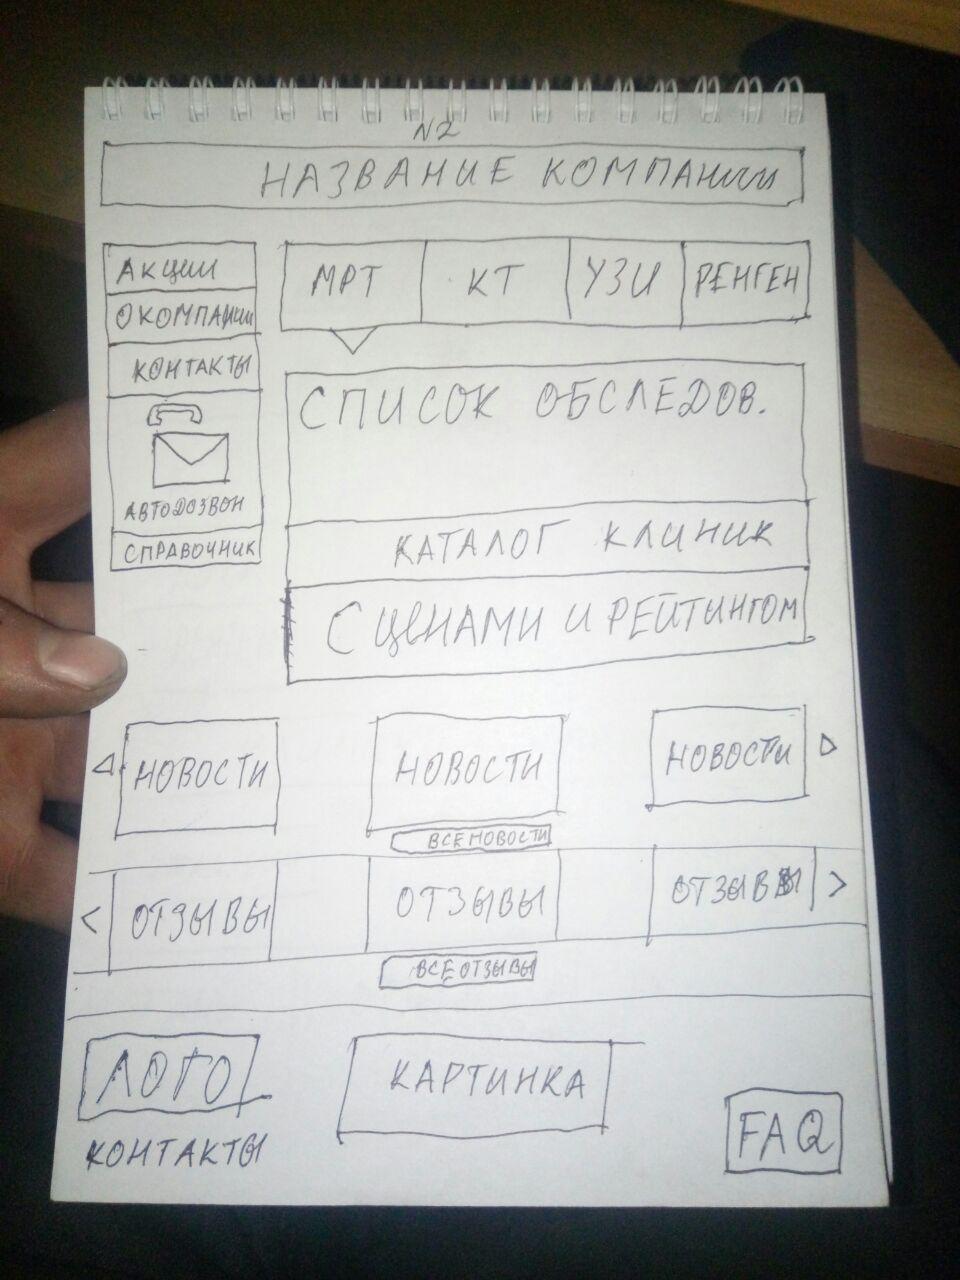 N2
НАЗВАНИЕ КОМПАНИИ
АКЦИИ
О КОМПАНИИ
КОНТАКТЫ
АВТОДОЗВОН
СПРАВОЧНИК
МРТ КТ УЗИ РЕНГЕН
СПИСОК ОБСЛЕДОВ.
КАТАЛОГ КЛИНИК
С ЦЕНАМИ И РЕЙТИНГОМ
НОВОСТИ НОВОСТИ НОВОСТИ
ВСЕ НОВОСТИ
< ОТЗЫВЫ ОТЗЫВЫ ОТЗЫВЫ >
ВСЕ ОТЗЫВЫ
ЛОГО КАРТИНКА
КОНТАКТЫ
FAQ